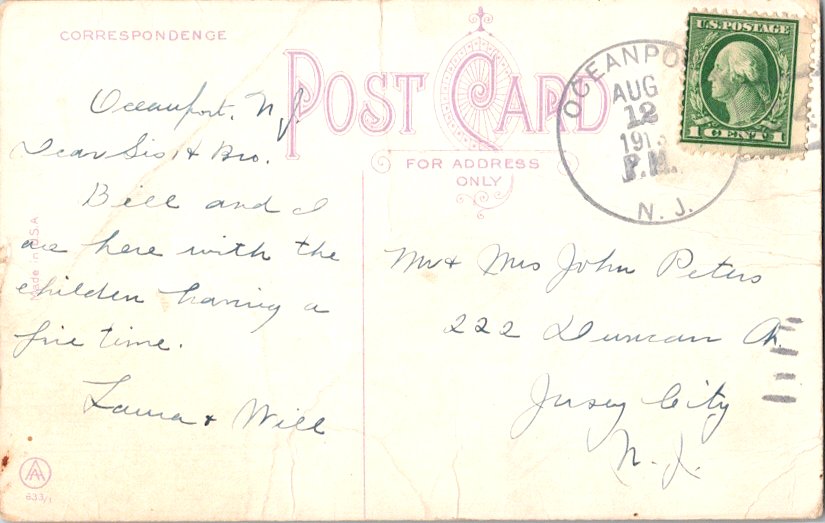 CORRESPONDENCE
POST CARD
FOR ADDRESS
ONLY
U.S. POSTAGE
1 CENT 1
OCEANPO
AUG
12
191
P.M.
N. J.
Oceanport, N.J.
Dear Sis, & Bro.
Bill and I
are here with the
children having a
fine time.
Laura & Will
Mr & Mrs John Peters
222 Duncan Av.
Jersey City
N. J.
Made in U.S.A
AA
633/1